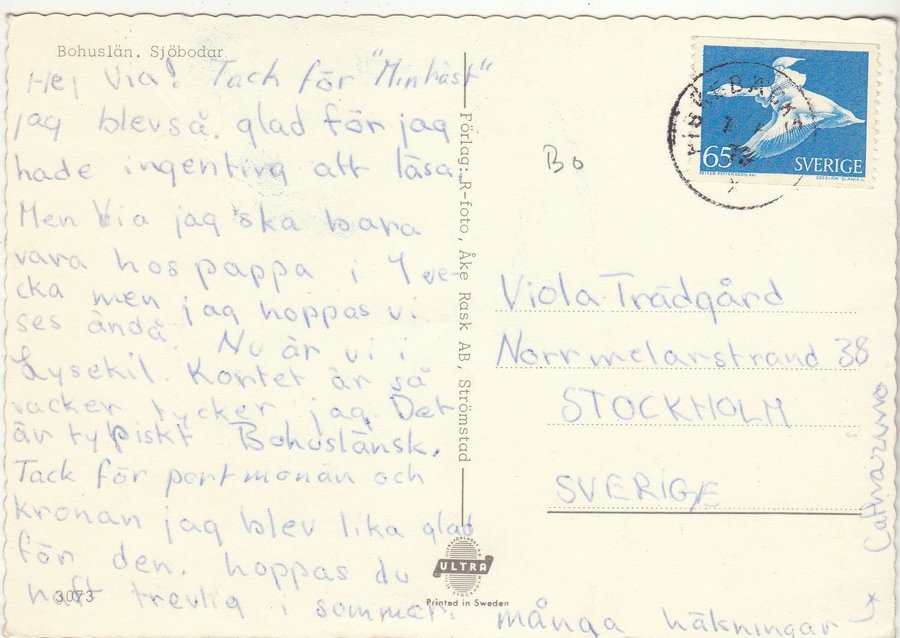 Bohuslän. Sjöbodar
Hej Via! Tack för "Minhäst"
jag blevså. glad för jag
hade ingenting att läsa.
Men Via jag ska bara
vara hos pappa i 1 ve-
cka men jag hoppas vi
ses ändå. Nu är vi i
Lysekil. Kortet är så
vacker tycker jag. Det
är typiskt Bohuslänsk.
Tack för portmonän och
kronan jag blev lika glad
för den. hoppas du
haft trevlig i sommar. många hälsningar
Catharina
3073
Förlag: R-foto, Åke Rask AB, Strömstad
ULTRA
Printed in Sweden
Bo
65 SVERIGE
PETTER PETTERSSON del.
CZESLAW SLANIA sc.
Viola Trädgård
Norrmelarstrand 38
STOCKHOLM
SVERIGE